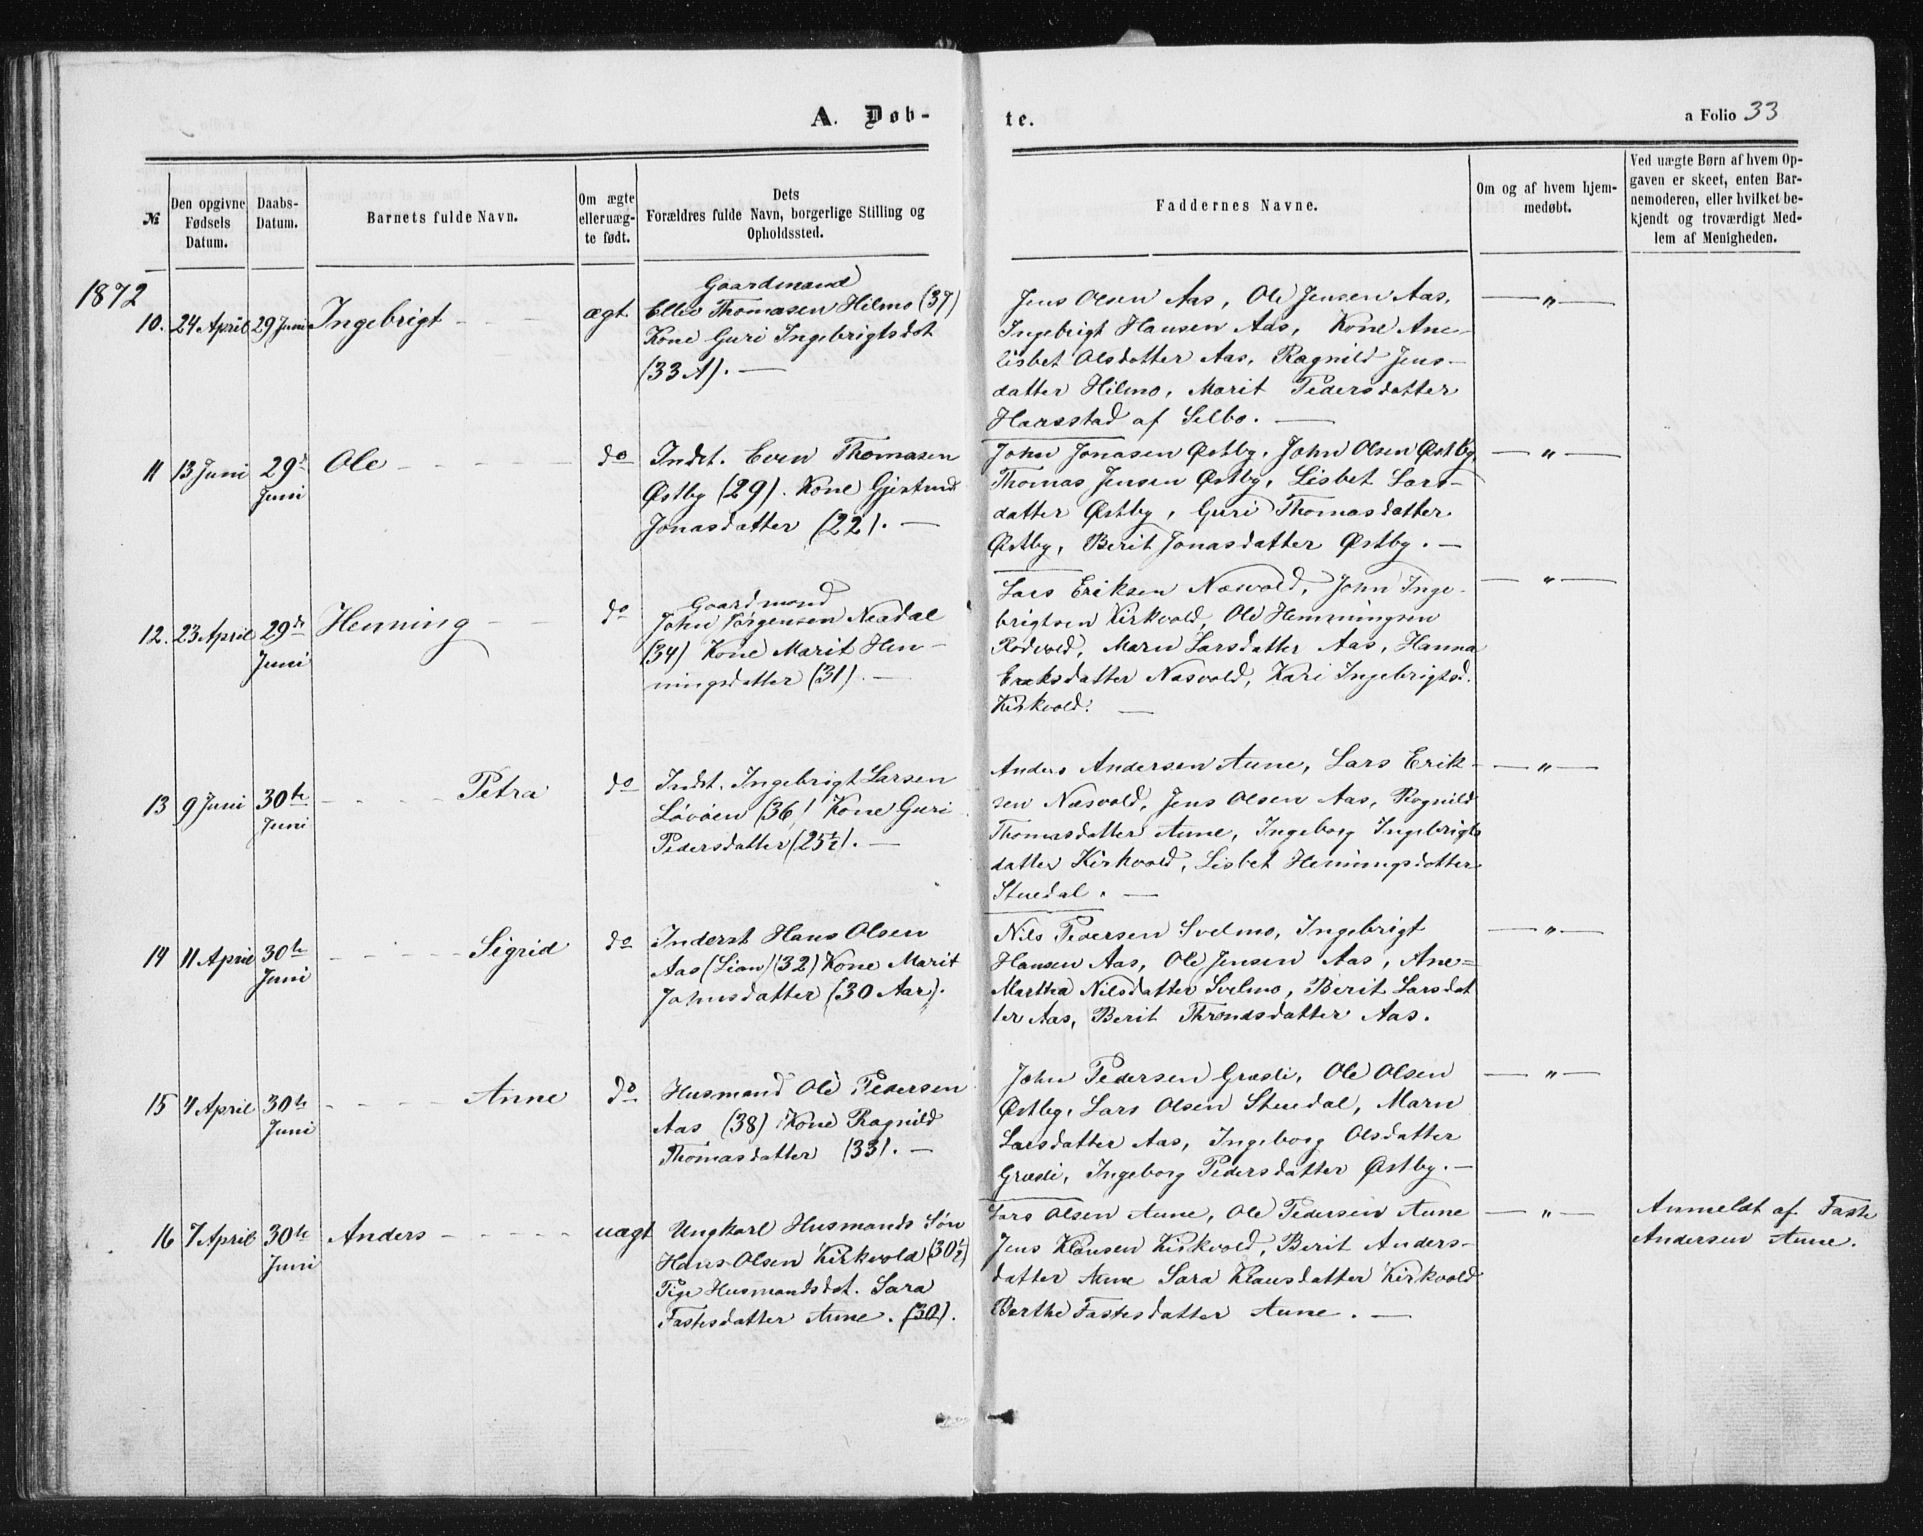 A. Døb-
te.
a Folio 33
№
Den opgivne Fødsels Datum.
Daabs-Datum.
Barnets fulde Navn.
Om ægte eller uæg-te født.
Dets Forældres fulde Navn, borgerlige Stilling og Opholdssted.
Faddernes Navne.
Om og af hvem hjem-medøbt.
Ved uægte Børn af hvem Op-gaven er skeet, enten Bar-nemoderen, eller hvilket be-kjendt og troværdigt Med-lem af Menigheden.
1872
10. 24 April 29 Juni Ingebrigt - - - ægt.
Gaardmand
Ellev Thomasen Hilmo (37)
Kone Guri Ingebrigtsdot
(33 A). —
Jens Olsen Aas, Ole Jensen Aas,
Ingebrigt Hansen Aas, Kone Ane-
lisbet Olsdatter Aas, Ragnild Jens-
datter Hilmo, Marit Pedersdatter
Haarstad af Selbo. —
— " —
11 13 Juni 29d Juni Ole - - - - - do
Indst. Even Thomasen
Østby (29). Kone Gjertrud
Jonasdatter (22). —
John Jonasen Østby, John Olsen Østby,
Thomas Jensen Østby, Lisbet Lars-
datter Østby, Guri Thomasdatter
Østby, Berit Jonasdatter Østby. —
— " —
12. 23 April 29de Juni Henning - - do
Gaardmand
John Jørgensen Neadal
(34) Kone Marit Hen-
ningsdatter (31). —
Lars Eriksen Næsvold, John Inge-
brigtsen Kirkvold, Ole Hemmingsen
Rodvold, Maru Larsdatter Aas, Hanna
Eriksdatter Næsvold, Kari Ingebrigtsd.
Kirkvold. —
— " —
13 9 Juni 30te Juni - - - - Petra do
Indst. Ingebrigt Larsen
Løvøen (36) Kone Guri
Pedersdatter (25½). —
Anders Andersen Aune, Lars Erik-
sen Næsvold, Jens Olsen Aas, Ragnild
Thomasdatter Aune, Ingeborg Ingebrigts
datter Kirkvold, Lisbet Henningsdatter
Stuedal. —
— " —
14 11 April 30te Juni - - - - - Sigrid do
Inderst Hans Olsen
Aas (Lian) (32) Kone Marit
Johnsdatter (30 Aar).
Nils Pedersen Svelmo, Ingebrigt
Hansen Aas, Ole Jensen Aas, Ane=
Martha Nilsdatter Svelmo, Berit Larsdat
ter Aas, Berit Throndsdatter Aas.
— " —
15 4 April 30te Juni - - - - Anne do
Husmand Ole Pedersen
Aas (38) Kone Ragnild
Thomasdatter (33). —
John Pedersen Græsli, Ole Olsen
Østby, Lars Olsen Stuedal, Maru
Larsdatter Aas, Ingeborg Olsdatter
Græsli, Ingeborg Pedersdatter Østby. —
— " —
16 7 April 30te Juni Anders - - - - - uægt
Ungkarl Husmands Søn
Hans Olsen Kirkvold (30½)
Pige Husmandsdat. Sara
Fastesdatter Aune. (30).
Lars Olsen Aune, Ole Pedersen Aune
Jens Klausen Kirkvold, Berit Anders-
datter Aune Sara Klausdatter Kirkvold
Berthe Fastesdatter Aune. —
— " —
Anmeldt af Faste
Andersen Aune.